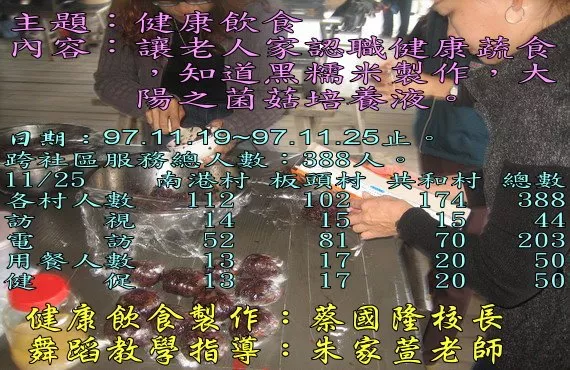 主題：健康飲食
內容：讓老人家認職健康蔬食
，知道黑糯米製作，大
陽之菌菇培養液。
日期：97.11.19~97.11.25止。
跨社區服務總人數：388人。
11/25 南港村 板頭村 共和村 總數
各村人數 112 102 174 388
訪視 14 15 15 44
電訪 52 81 70 203
用餐人數 13 17 20 50
健促 13 17 20 50
健康飲食製作：蔡國隆校長
舞蹈教學指導：朱家萱老師